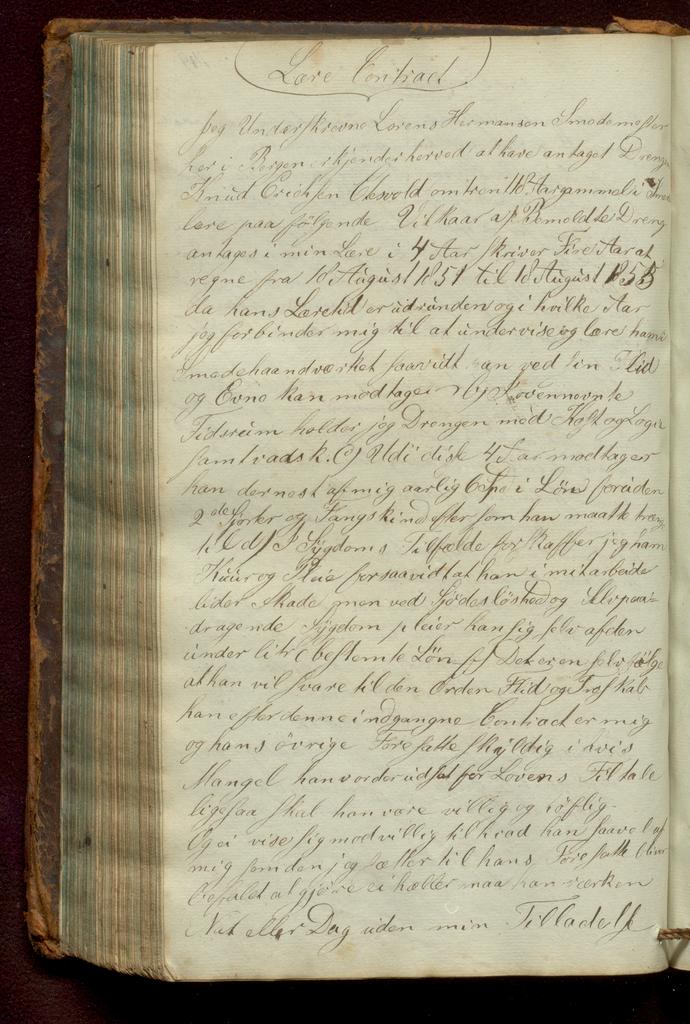 Lære Contract
Jeg Underskrevne Lorens Hermansen Smedemester
her i Bergen erkjender herved at have antaget Drengen
Knud Erichsen omtrent 18 Aar gammel i
lære paa følgende Vilkaar a) Bemeldte Dreng
antages i min Lære i 4 Aar skriver Fire Aar at
regne fra 18 August 1851 til 18 August 1855
da hans Læretid er udrunden og i hvilke Aar
jeg forbinder mig til at undervise og lære ham
smedehaandværket saavidt han ved sin Flid
og Evne kan modtage b) I ovennevnte
Tidsrum holder jeg Drengen med Kost og Logie
samt vadsk. c) Udi disse 4 Aar modtager
han dernest af mig aarlig 6 i Løn foruden
2de Sjorter og Fangskind efter som han maatte trænge
til d) I Sygdoms Tilfælde forskaffer jeg ham
Kuur og Pleie forsaavidt at han i mit arbeide
lider Skade men ved Sjødesløshed og selvpaa-
dragende Sygdom pleier han sig selv af den
under litr c bestemte Løn Det er en selvfølge
at han vil svare til den Orden Flid og Troskab
han efter denne indgangne Contract er mig
og hans øvrige Foresatte skyldig i hvis
Mangel han vorder udsat for Lovens Tiltale
ligesaa skal han være villig og høflig
Og ei vise sig modvillig til hvad han saavel af
mig som den jeg sætter til hans Foresatte bliver
befalet at gjøre ei heller maa han værken
Nat eller Dag uden min Tilladelse